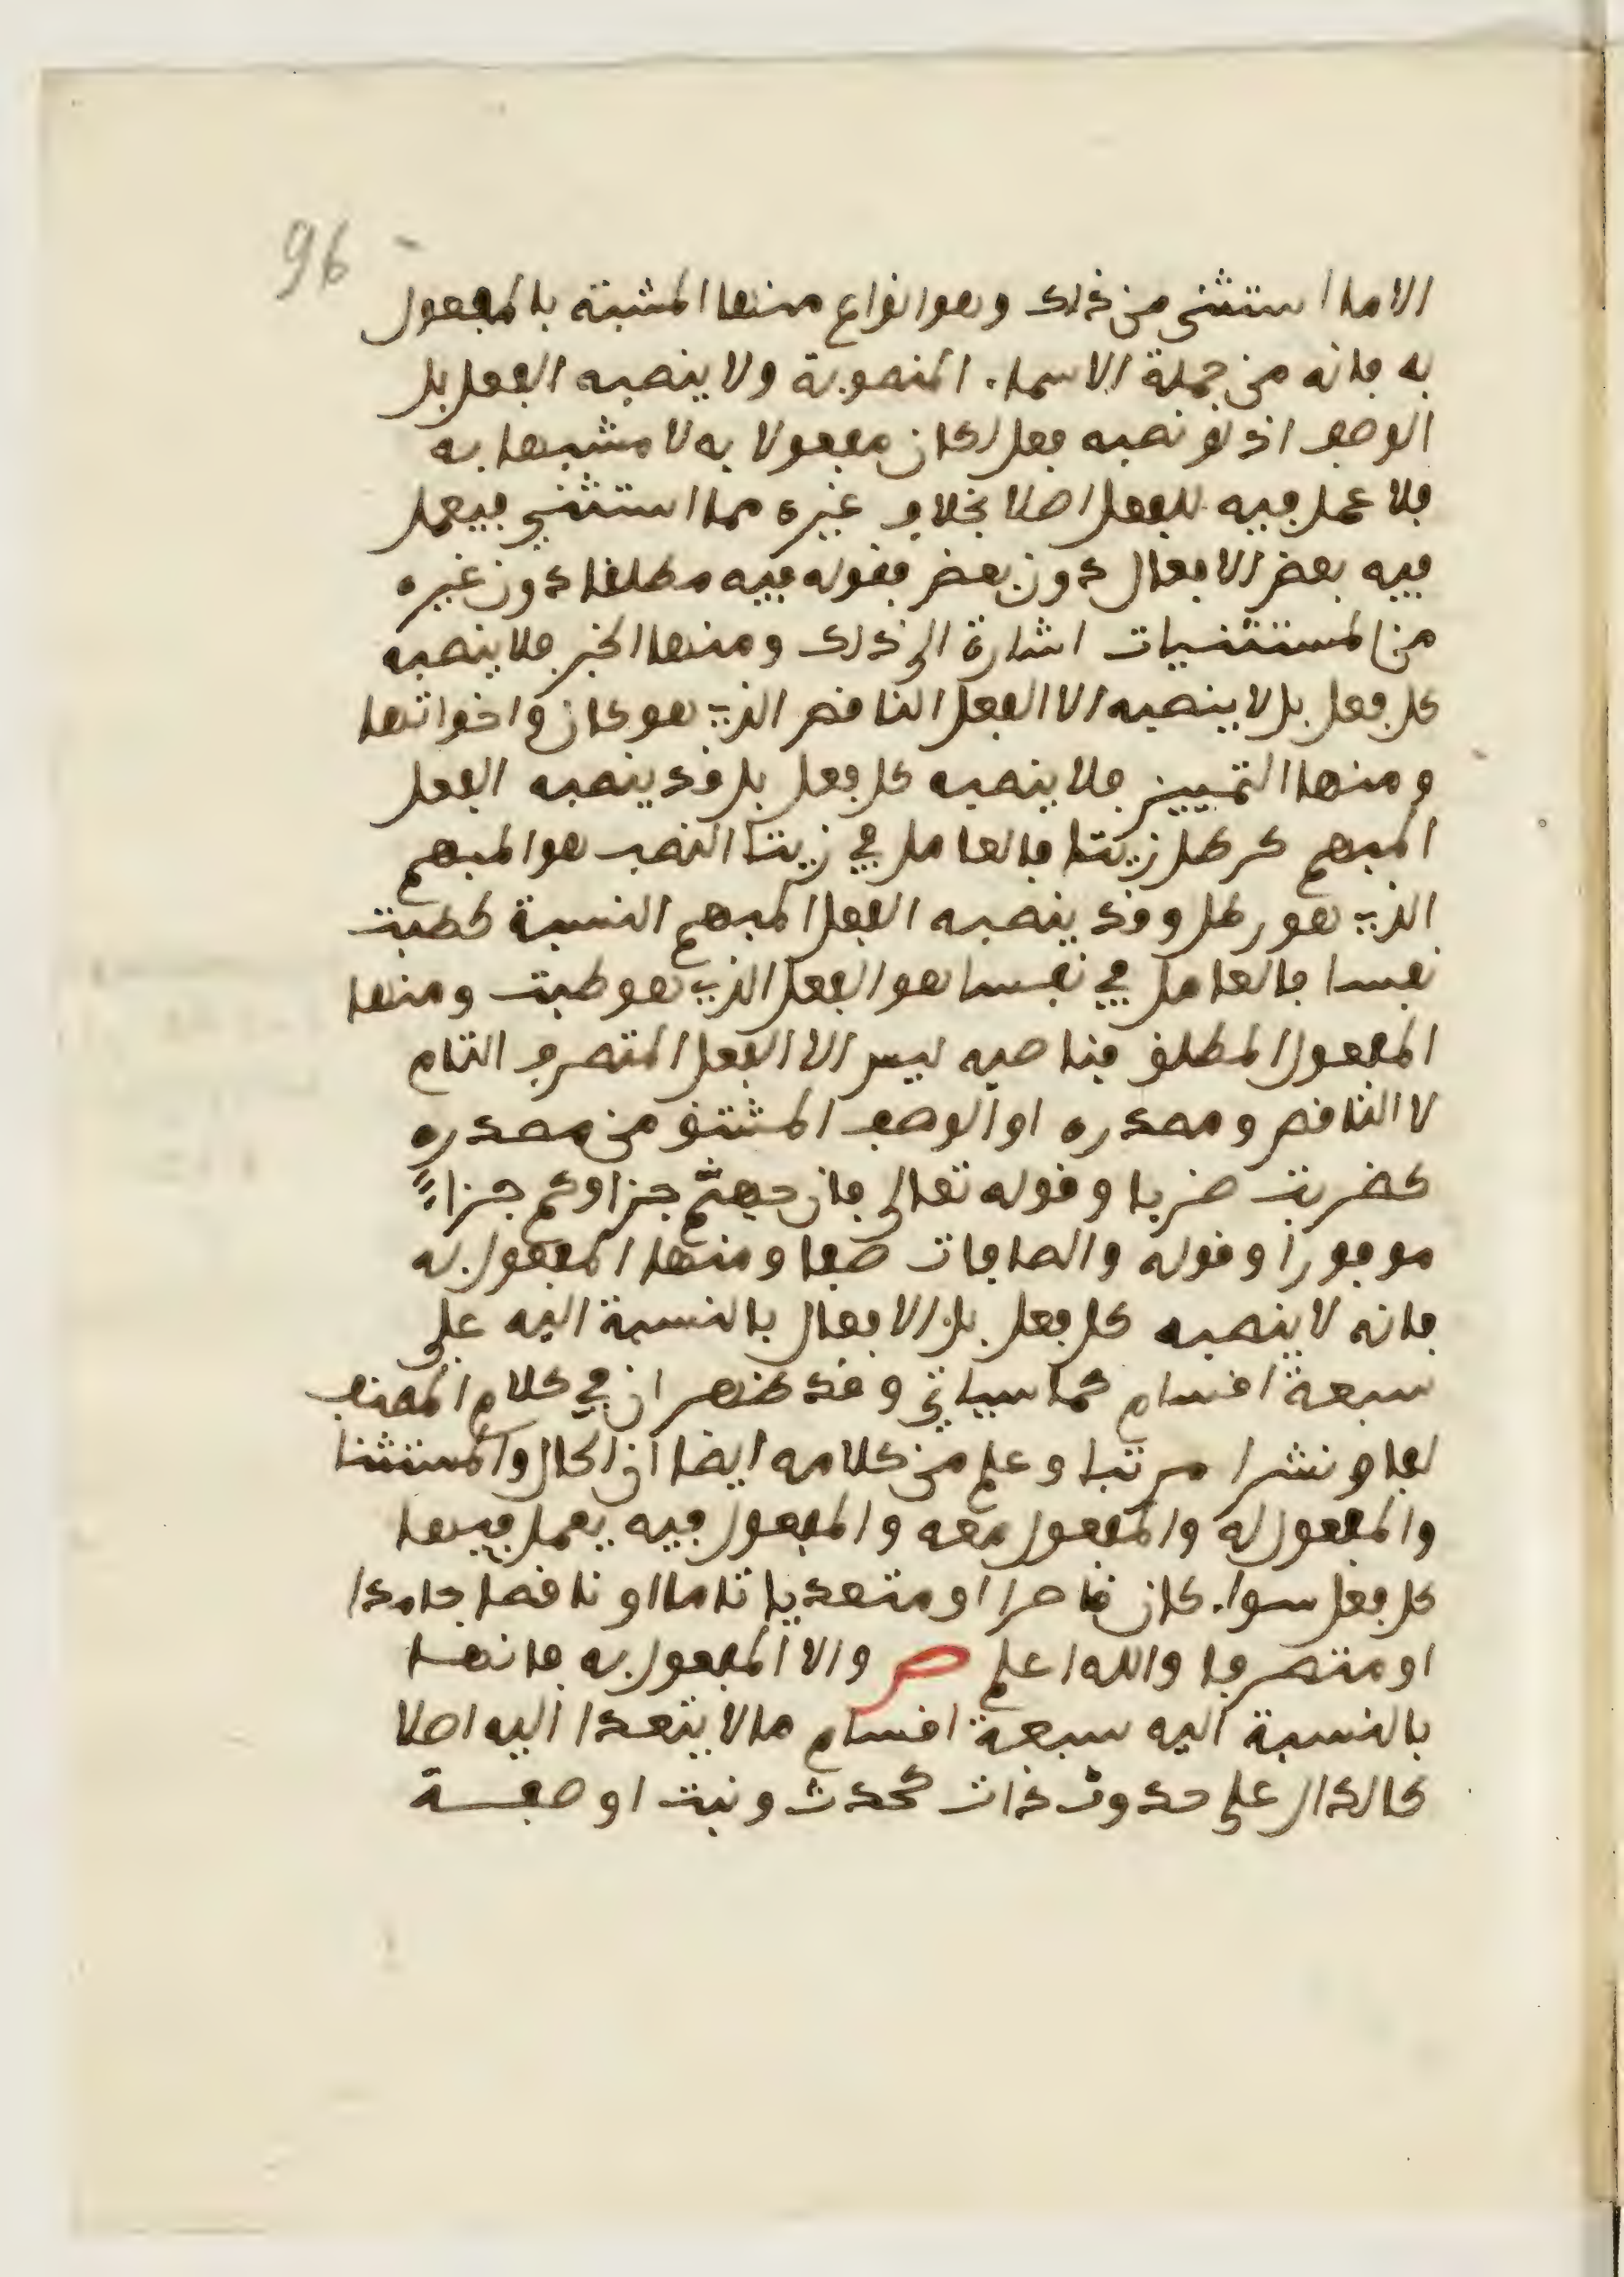 96
الا ما استثنى من ذلك وهو انواع منها المشبة بالمفعول
به فانه من جملة الاسماء المنصوبة ولا ينصبه الفعل بل
الوصف اذ لو نصبه فعل لكان مفعولا به لا مشبها به
فلا عمل فيه للفعل اصلا بخلاف غيره مما استثنى فيعمل
فيه بعض الافعال دون بعض فقوله فيه مطلقا دون غيره
من المستثنيات اشارة الى ذلك ومنها الخبر فلا ينصبه
كل فعل بل لا ينصبه الا الفعل الناقص الذي هو كان واخواتها
ومنها التمييز فلا ينصبه كل فعل بل قد ينصبه الفعل
المبهم كرطل زيتا فالعامل في زيتا النصب هو المبهم
الذي هو رطل وقد ينصبه الفعل المبهم النسبة كطبت
نفسا فالعامل في نفسا هو الفعل الذي هو طبت ومنها
المفعول المطلق فناصبه ليس الا الفعل المتصرف التام
لا الناقص ومصدره او الوصف المشتق من مصدره
كضربت ضربا وقوله تعالى فان جهنم جزاوكم جزاءً
موفورا وقوله والصافات صفا ومنها المفعول به
فانه لا ينصبه كل فعل بل الافعال بالنسبة اليه على
سبعة اقسام كما سياتي وقد ظهر ان في كلام المصنف
لفا ونشرا مرتبا وعلم من كلامه ايضا ان الحال والمستثنا
والمفعول له والمفعول معه والمفعول فيه يعمل فيها
كل فعل سواء كان قاصرا او متعديا تاما او ناقصا جامدا
او متصرفا والله اعلم ص والا المفعول به فانها
بالنسبة اليه سبعة اقسام ما لا يتعدا اليه اصلا
كالدال على حدوث ذات كحدث ونبت او صفة